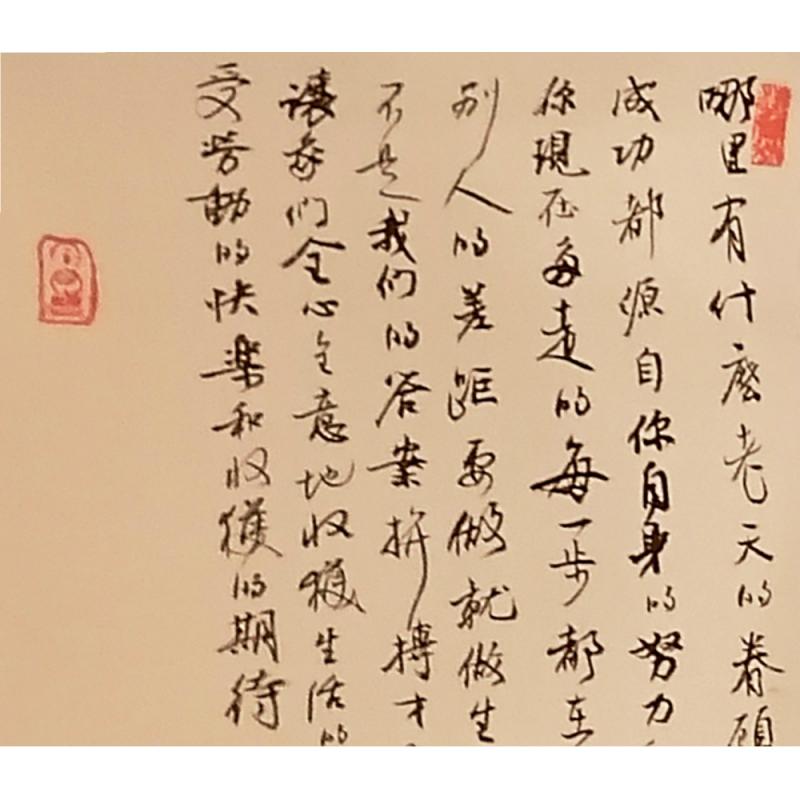 哪里有什麼老天的眷顧
成功都源自你自身的努力
你現在每走的每一步都在
別人的差距要做就做生
不是我们的答案拼搏才
讓我们全心全意地收穫生活的
受勞動的快樂和收獲的期待